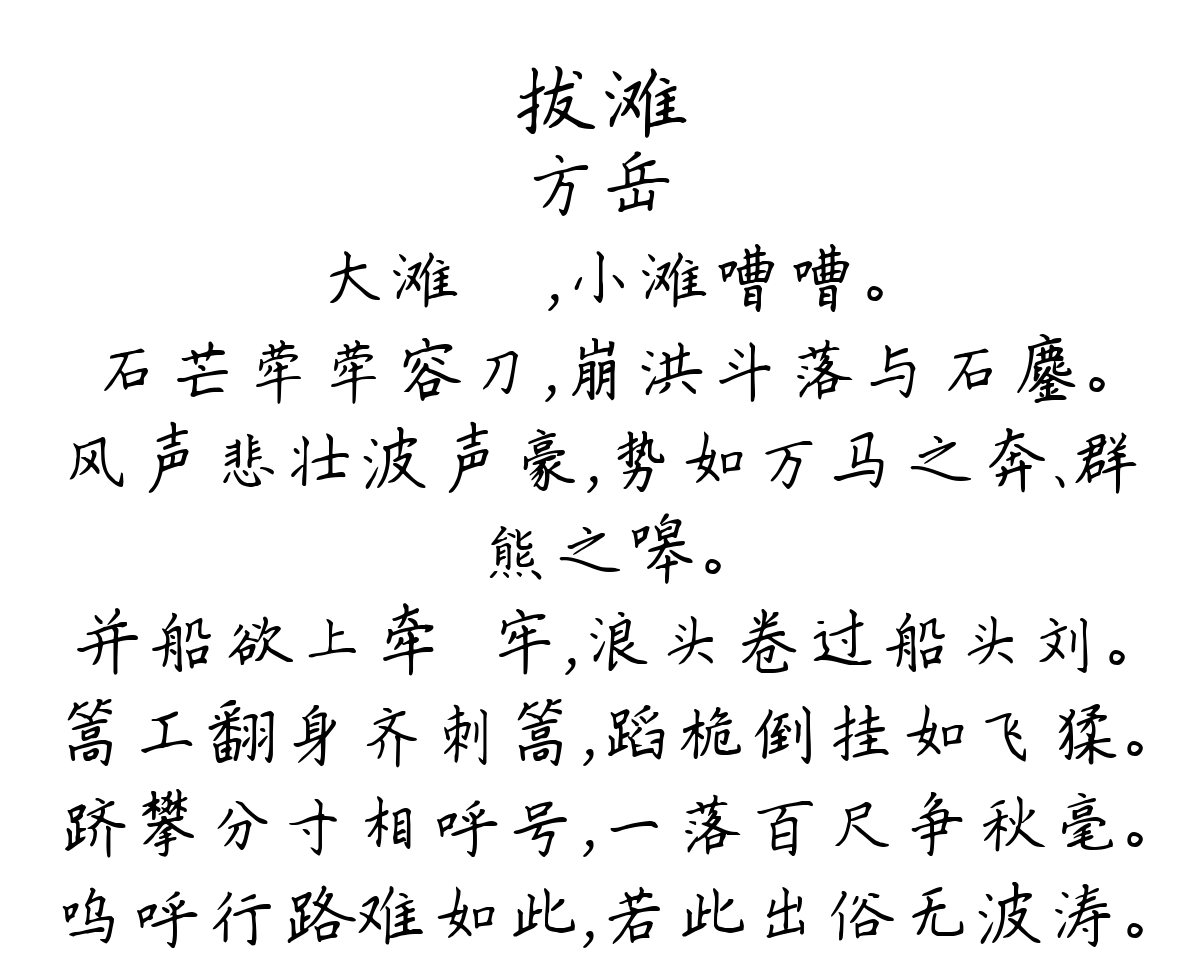 拔滩
方岳
大滩 ,小滩嘈嘈。
石芒荦荦容刀,崩洪斗落与石鏖。
风声悲壮波声豪,势如万马之奔、群
熊之嗥。
并船欲上牵 牢,浪头卷过船头刘。
篙工翻身齐刺篙,蹈桅倒挂如飞猱。
跻攀分寸相呼号,一落百尺争秋毫。
呜呼行路难如此,若此出俗无波涛。